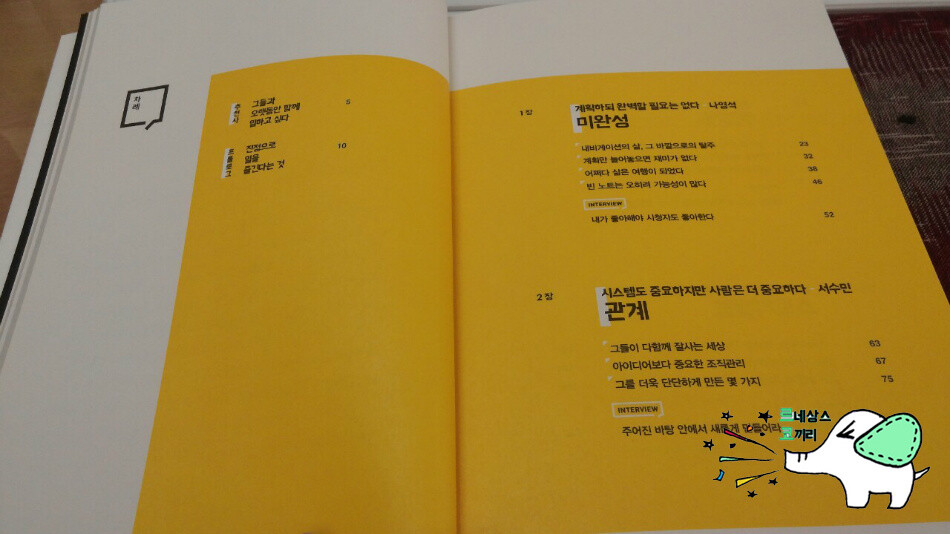 차례
추천사
그들과
오랫동안 함께
일하고 싶다
5
프롤로그
진정으로
일을
즐긴다는 것
10
1장
계획하되 완벽할 필요는 없다 - 나영석
미완성
내비게이션의 삶, 그 바깥으로의 탈주 23
계획만 늘어놓으면 재미가 없다 32
어쩌다 삶은 여행이 되었다 38
빈 노트는 오히려 가능성이 많다 46
INTERVIEW
내가 좋아해야 시청자도 좋아한다 52
2장
시스템도 중요하지만 사람은 더 중요하다 - 서수민
관계
그들이 다함께 잘사는 세상 63
아이디어보다 중요한 조직관리 67
그를 더욱 단단하게 만든 몇 가지 75
INTERVIEW
주어진 바탕 안에서 새롭게 만들어라
르네상스
코끼리